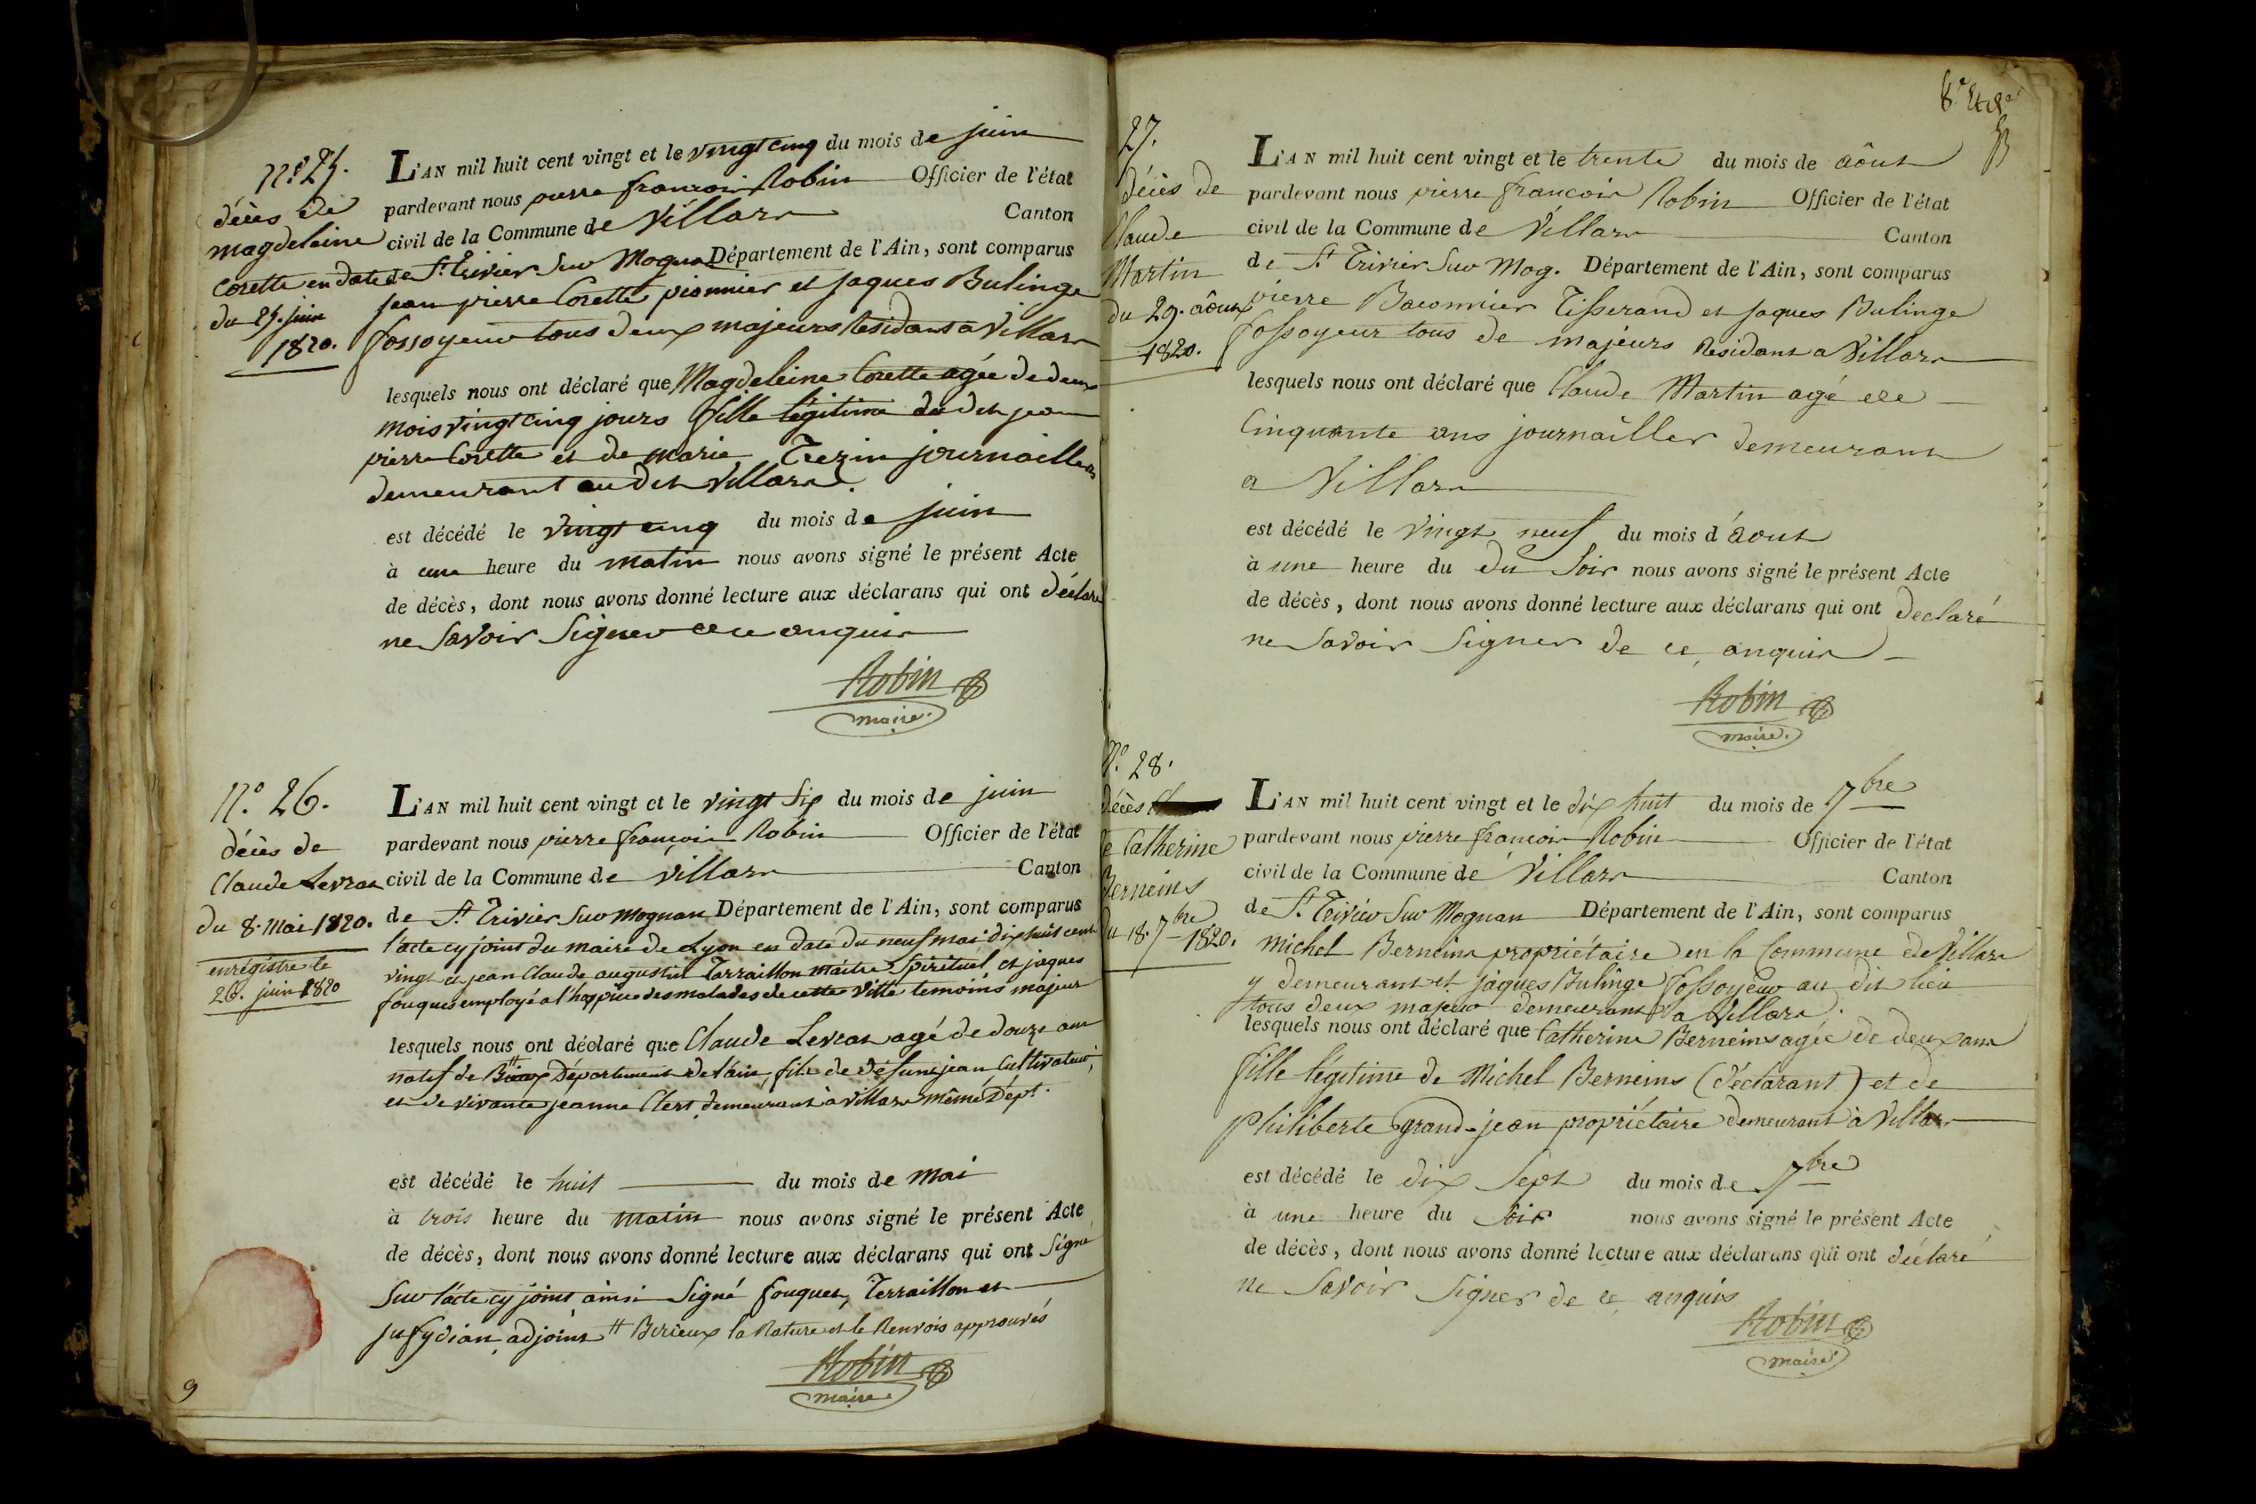 N.o 25.
décès de
magdeleine
Corette en date
du 25. juin
1820.
L'AN mil huit cent vingt et le vingt cinq du mois de juin
pardevant nous pierre françois Robin Officier de l'état
civil de la Commune de Villars Canton
de St. Trivier Sur Mognan Département de l'Ain, sont comparus
jean pierre Corette pionnier et jaques Bulinge
fossoyeur tous deux majeurs Residant a Villars
lesquels nous ont déclaré que Magdeleine Corette agée de deux
mois vingt cinq jours fille légitime du dit jean
pierre Corette et de marie Trezin journaillers
demeurant au dit Villars.
est décédé le vingt cinq du mois de juin
à une heure du matin nous avons signé le présent Acte
de décès, dont nous avons donné lecture aux déclarans qui ont déclaré
ne Savoir Signer de ce enquis
Robin
maire.
N.o 26.
décès de
Claude Levrat
du 8. Mai 1820.
enrégistre le
26. juin 1820
L'AN mil huit cent vingt et le vingt Six du mois de juin
pardevant nous pierre françois Robin Officier de l'état
civil de la Commune de Villars Canton
de St. Trivier Sur Mognan Département de l'Ain, sont comparus
l'acte cy joint du maire de Lyon en date du neuf mai dix huit cent
vingt et jean Claude augustin Terraillon maitre Spirituel et jaques
fouques employé a l'hospice des malades de cette Ville temoins majeur
lesquels nous ont déclaré que Claude Levrat agé de douze ans
natif de Département de l'ain, fils de défunt jean Cultivateur,
et de vivante jeanne Clert demeurant à Villars même Dépt.
est décédé le huit du mois de Mai
à trois heure du matin nous avons signé le présent Acte
de décès, dont nous avons donné lecture aux déclarans qui ont Signé
Sur l'acte cy joint ainsi Signé fouques, Terraillon et
adjoint # Birieux la Rature et le Renvois approuvés
Robin
maire.
9
27.
décès de
Claude
Martin
du 29. aôut
1820.
L'AN mil huit cent vingt et le trente du mois de aôut
pardevant nous pierre françois Robin Officier de l'état
civil de la Commune de Villars Canton
de St Trivier Sur Mog. Département de l'Ain, sont comparus
pierre Baconnier Tisserand et jaques Bulinge
fossoyeur tous de majeurs Residant a Villars
lesquels nous ont déclaré que Claude Martin agé de
Cinquante ans journailler demeurant
a Villars
est décédé le vingt neuf du mois d'aout
à une heure du du Soir nous avons signé le présent Acte
de décès, dont nous avons donné lecture aux déclarans qui ont declaré
ne Savoir Signer de ce enquis
Robin
maire.
N.o 28.
décès
de Catherine
Berneins
du 18. 7bre 1820.
L'AN mil huit cent vingt et le dix huit du mois de 7bre
pardevant nous pierre françois Robin Officier de l'état
civil de la Commune de Villars Canton
de St. Trivier Sur Mognan Département de l'Ain, sont comparus
Michel Berneins propriétaire en la Commune de Villars
y demeurant et jaques Bulinge fossoyeur au dit lieu
tous deux majeur demeurant a Villars.
lesquels nous ont déclaré que Catherine Berneins agée de deux ans
fille légitime de Michel Berneins (déclarant) et de
Philiberte grand-jean propriétaire demeurant à Villars
est décédé le dix Sept du mois de 7bre
à une heure du Soir nous avons signé le présent Acte
de décès, dont nous avons donné lecture aux déclarans qui ont déclaré
ne Savoir Signer de ce enquis
Robin
maire.